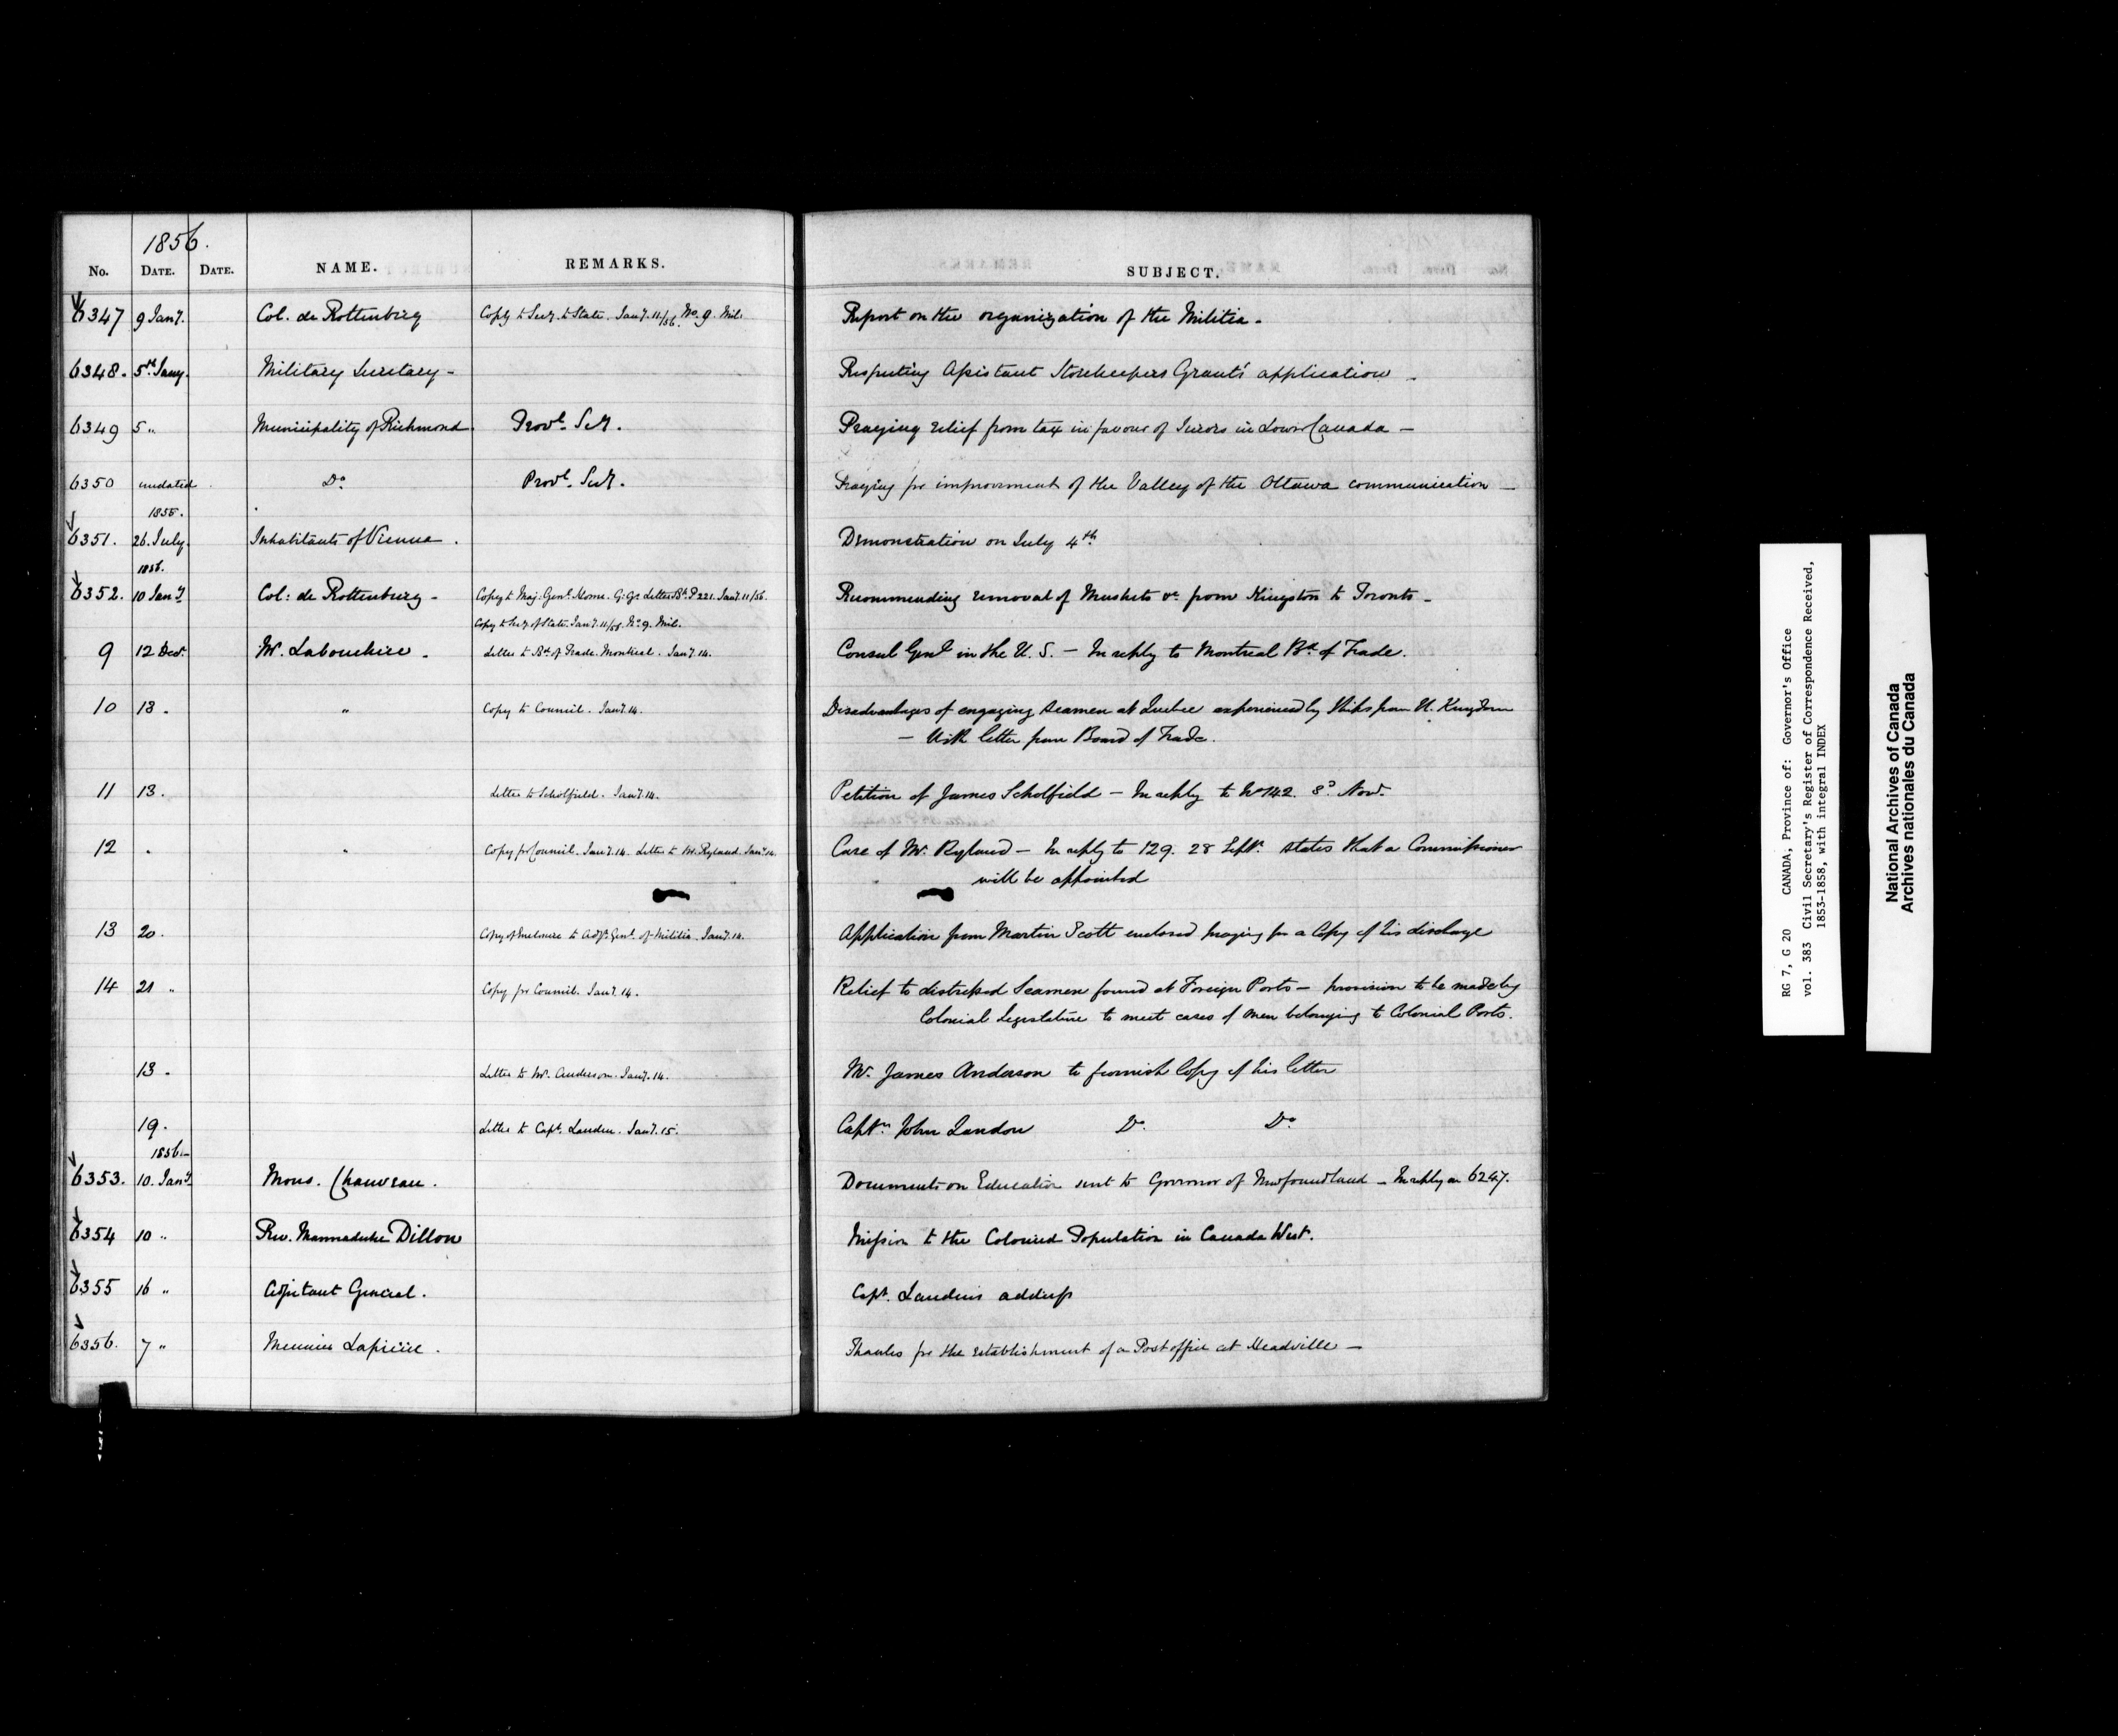 1856.
No. DATE. DATE. NAME. REMARKS. SUBJECT.
6347 9 Jany. Col. de Rottenburg Copy to Secy. to State. Jany. 11/56. No. 9. Mil. Report on the organization of the Militia.
6348. 5th Jany. Military Secretary - Respecting Assistant Storekeepers Grant's application -
6349 5 " Municipality of Richmond Provl. Secy. Praying relief from tax in favour of Jurors in Lower Canada -
6350 undated Do Provl. Secy. Praying for improvement of the Valley of the Ottawa communication -
1855.
6351. 26. July. Inhabitants of Vienna. Demonstration on July 4th
1856.
6352. 10 Jany Col: de Rottenburg - Copy to Maj. Genl. Home. G: Gs Letter Bk P 221. Jany. 11/56. Recommending removal of Muskets &c from Kingston to Toronto -
Copy to Secy. of State. Jany. 11/56. No 9. Mil.
9 12 Decr. Mr. Labouchere. Letter to Bd. of Trade. Montreal. Jany. 14. Consul Genl in the U. S. - In reply to Montreal Bd. of Trade.
10 13. " Copy to Council. Jany. 14. Disadvantages of engaging Seamen at Quebec experienced by Ships from U. Kingdom
- With letter from Board of Trade.
11 13. Letter to Scholfield. Jany. 14. Petition of James Scholfield - In reply to No 142. 8 Novr.
12 . " Copy for Council. Jany. 14. Letter to Mr. Ryland. Jany 14. Case of Mr. Ryland - In reply to 129. 28 Septr. states that a Commissioner
will be appointed
13 20. Copy of Enclosure to Adjt. Genl. of Militia. Jany. 14. Application from Martin Scott enclosed praying for a Copy of his discharge
14 21 " Copy for Council. Jany. 14. Relief to distressed Seamen found at Foreign Ports - provision to be made by
Colonial Legislature to meet cases of men belonging to Colonial Ports.
13. Letter to Mr. Anderson. Jany. 14. Mr. James Anderson to furnish Copy of his letter
19. Letter to Capt. Landon. Jany. 15. Captn. John Landon Do. Do
1856.-
6353. 10. Jany Mons. Chauveau. Documents on Education sent to Governor of Newfoundland - In reply on 6247.
6354 10 " Rev. Marmaduke Dillon Mission to the Coloured Population in Canada West.
6355 16 " Adjutant General. Capt. Landon's address
6356. 7 " Lapierre. Thanks for the establishment of a Post office at Meadville -
RG 7, G 20 CANADA, Province of: Governor's Office
vol. 383 Civil Secretary's Register of Correspondence Received,
1853-1858, with integral INDEX
National Archives of Canada
Archives nationales du Canada